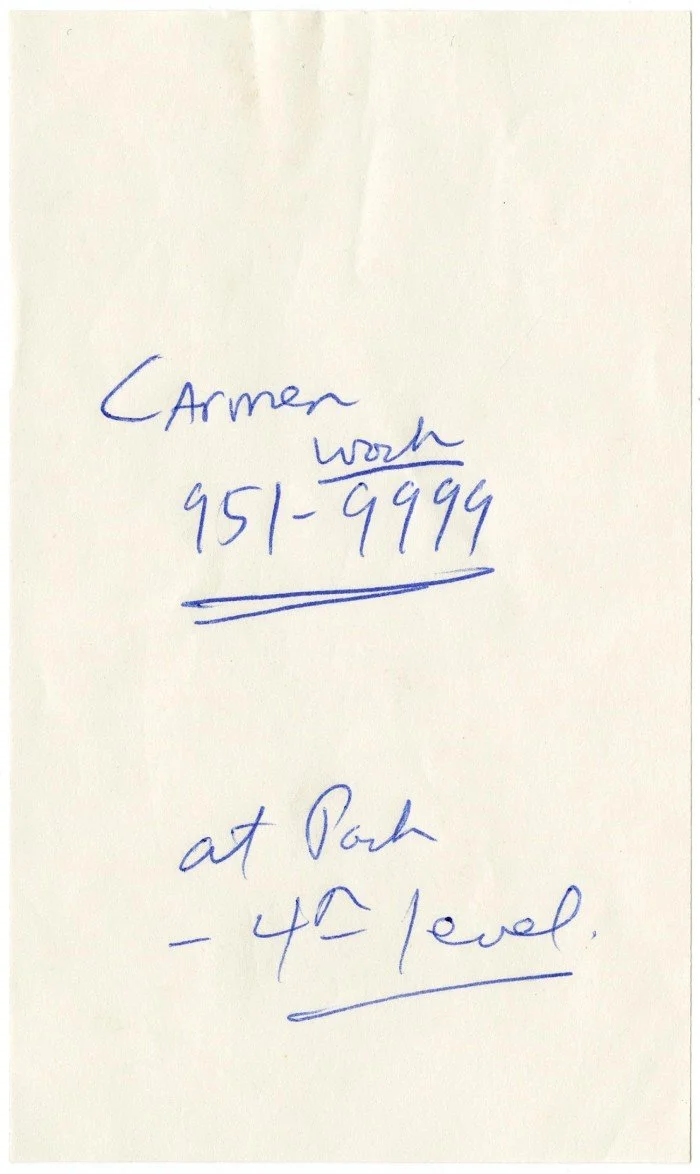 Carmen
work
951-9999
at Park
- 4th level.